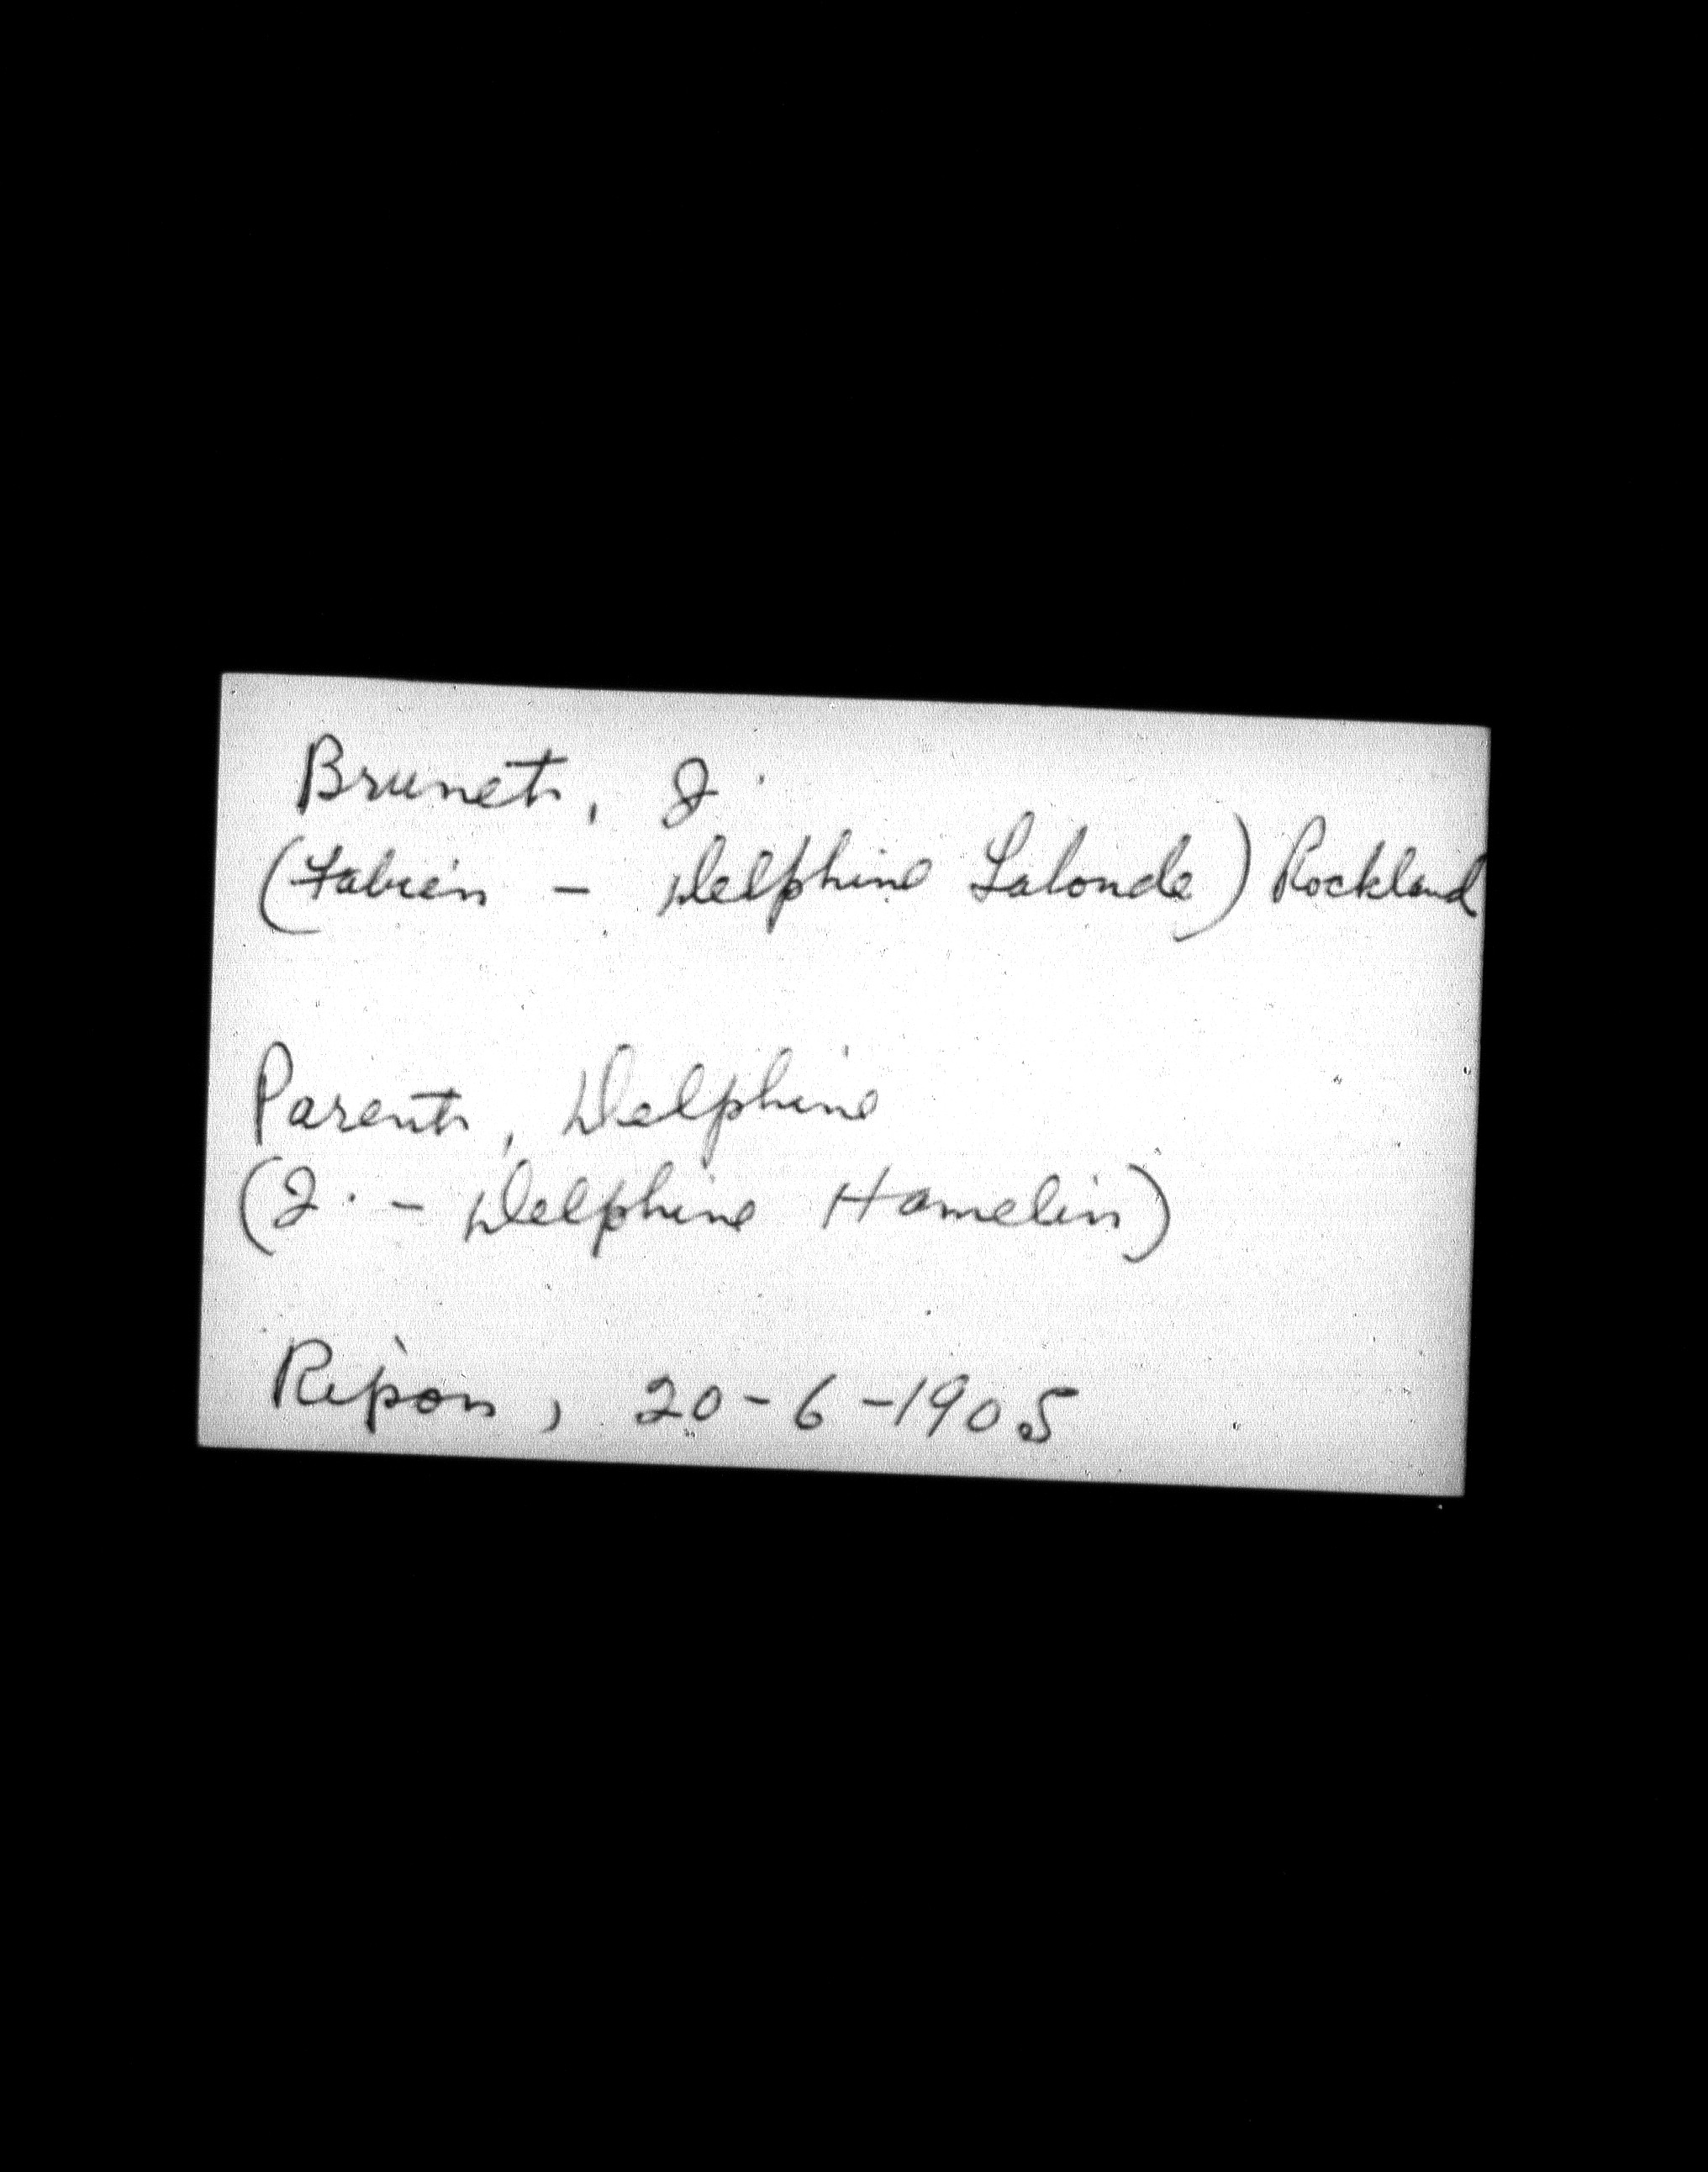 Brunet, J.
(Fabien - Delphine Lalonde) Rockland
Parent, Delphine
(J. - Delphine Hamelin)
Ripon, 20-6-1905